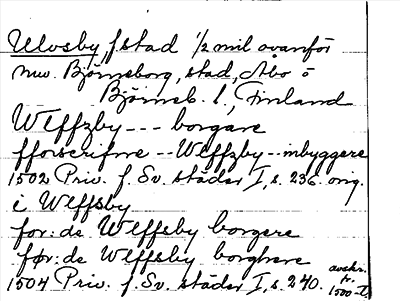 Ulvsby, f. stad 1/2 mil ovanför
nuv. Björneborg, stad, Åbo o
Björneb. l., Finland
Wlffzby --- borgare
fforscrifne -- Wlffzby -- inbyggere
1502 Priv. f. Sv. städer I, s. 236. orig.
i Wlffsby
for: de Wlffsby borgere
før: de Wlffsby borghere
1504 Priv. f. Sv. städer I, s. 240.
avskr.
fr.
1500-t.